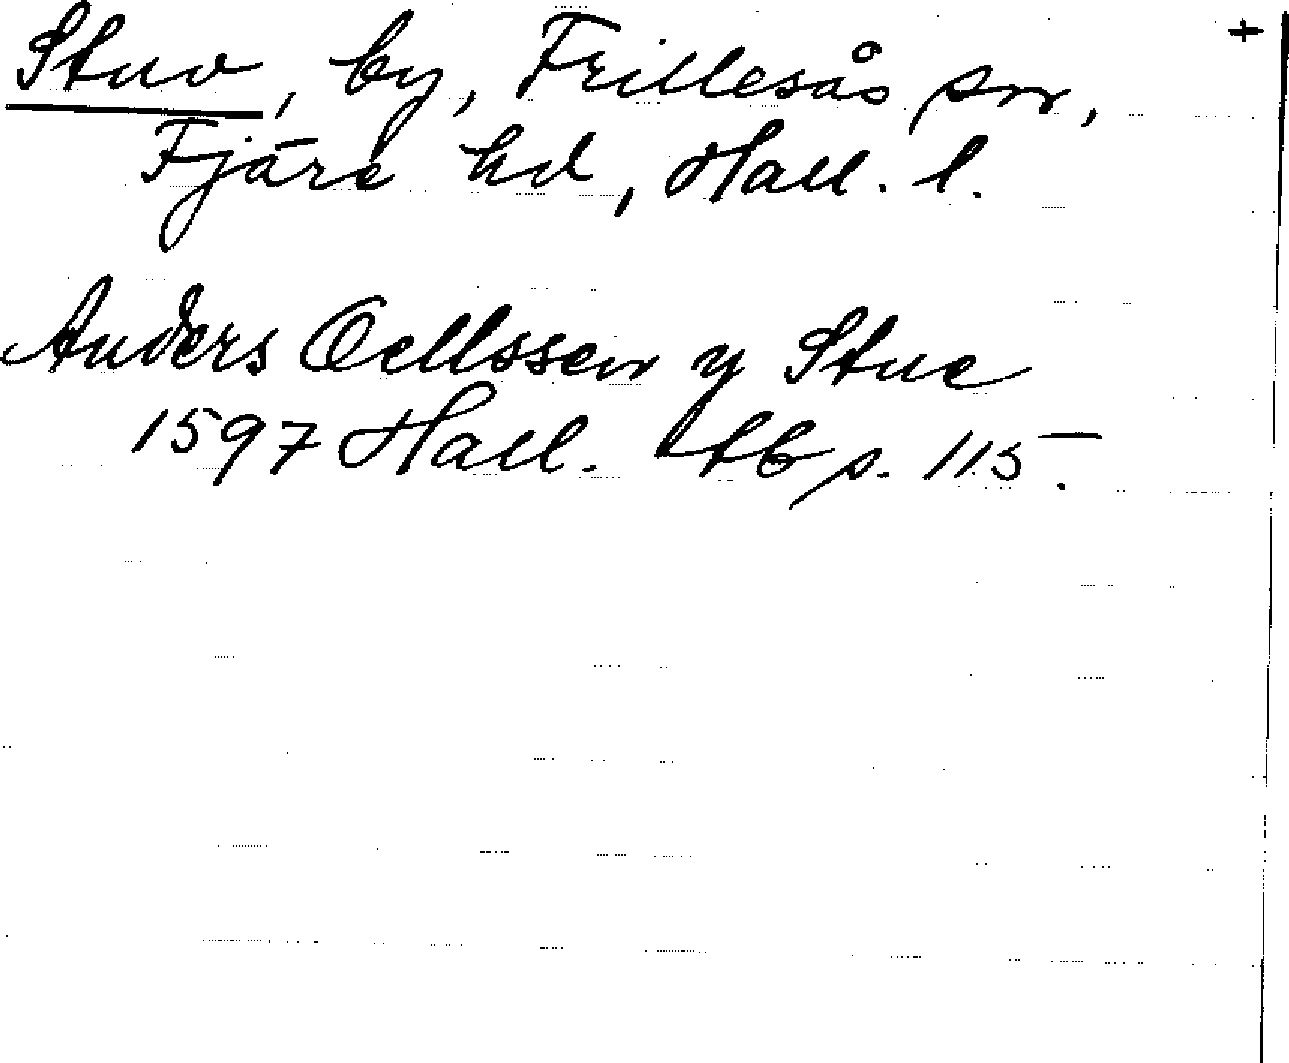 +
Stuv, by, Frillesås sn,
Fjäre hd, Hall. l.
Anders Oellssen y Stue
1597 Hall. tb p. 115.